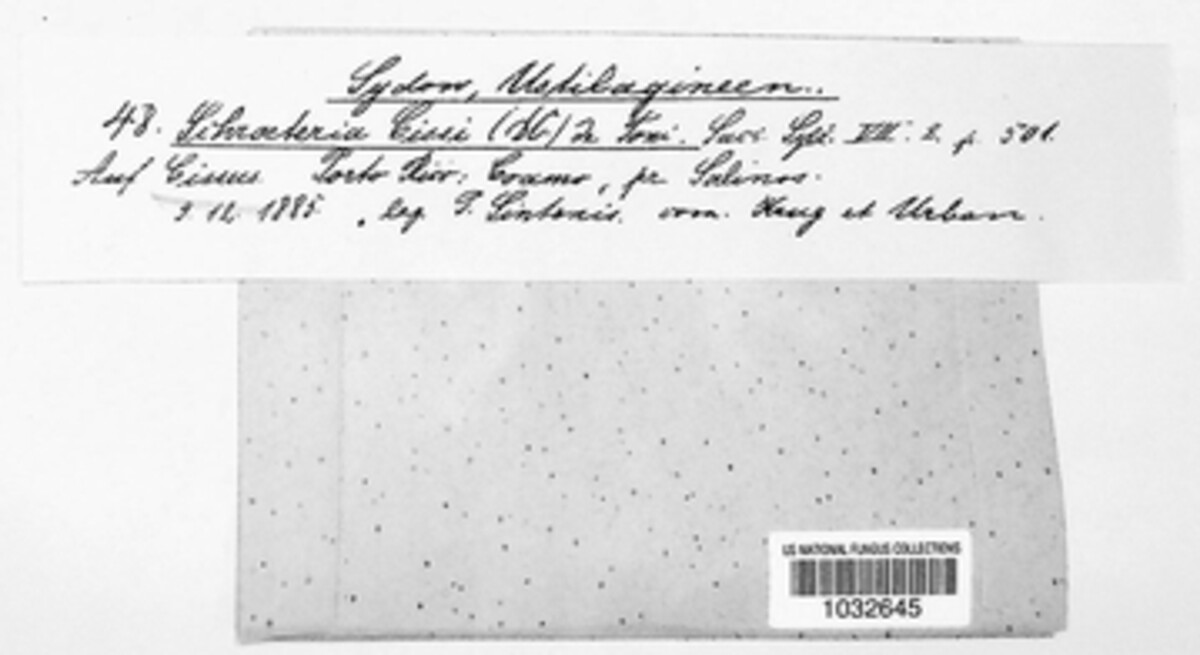 Sydow, Ustilagineen.
48. Schroeteria Cissi (DC) De Toni. Sacc. Syll. VII. 2. p. 501.
Auf Cissus Porto Rico: Coamo, pr. Salinas.
9. 12. 1885. leg. P. Sintenis. com. Krug et Urban.
US NATIONAL FUNGUS COLLECTIONS
1032645